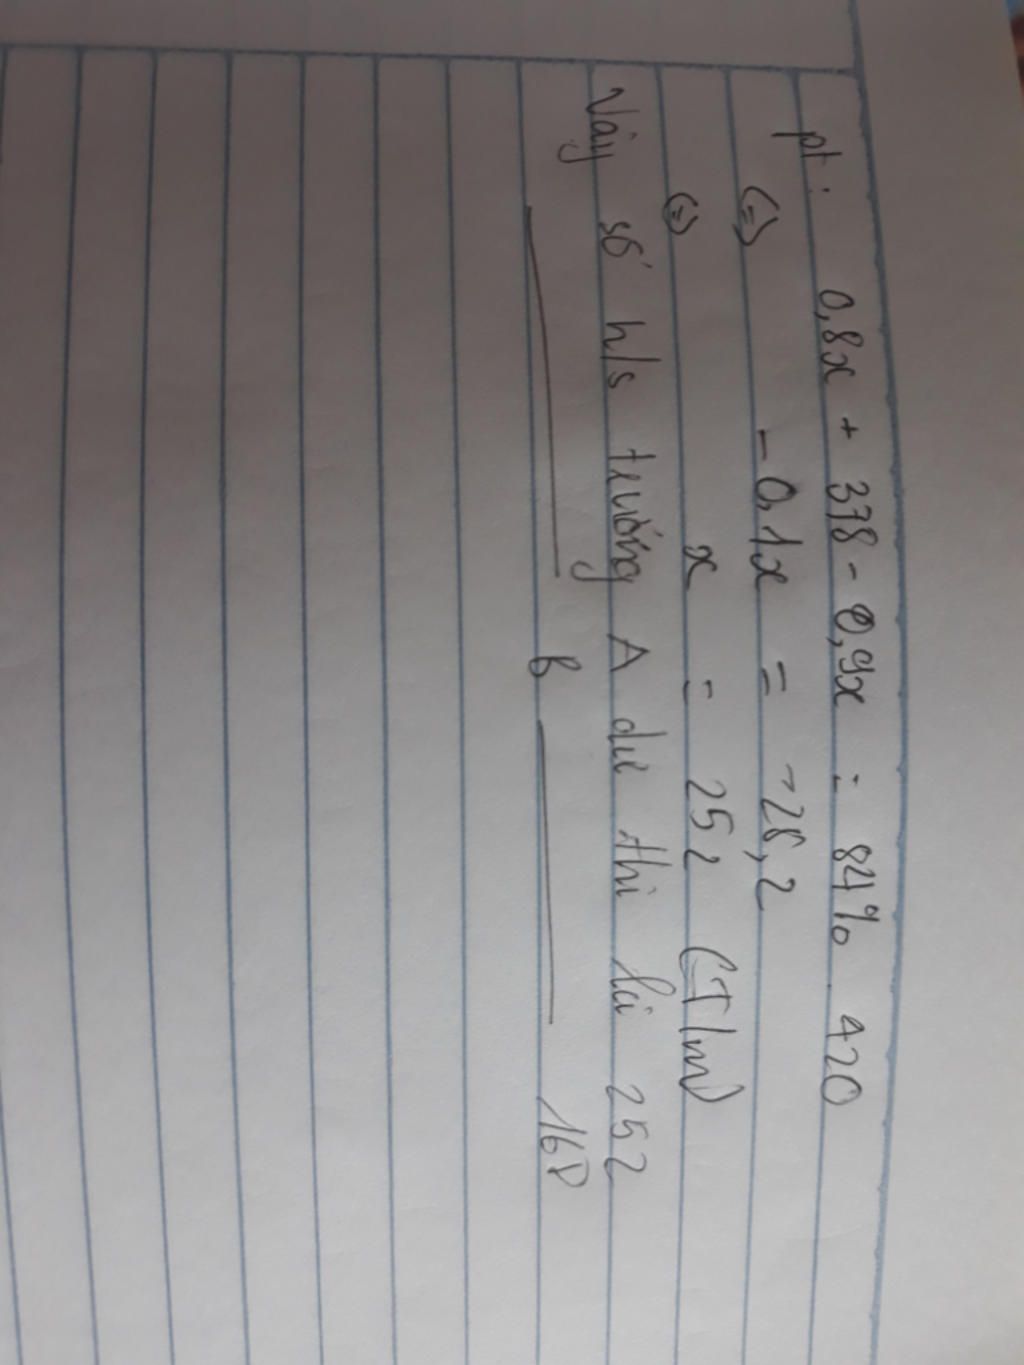 pt: 0,8x + 378 - 0,9x = 84% . 420
(=) -0,1x = -25,2
(=) x = 252 (T/m)
Vậy số h/s trường A dự thi là 252
B 168